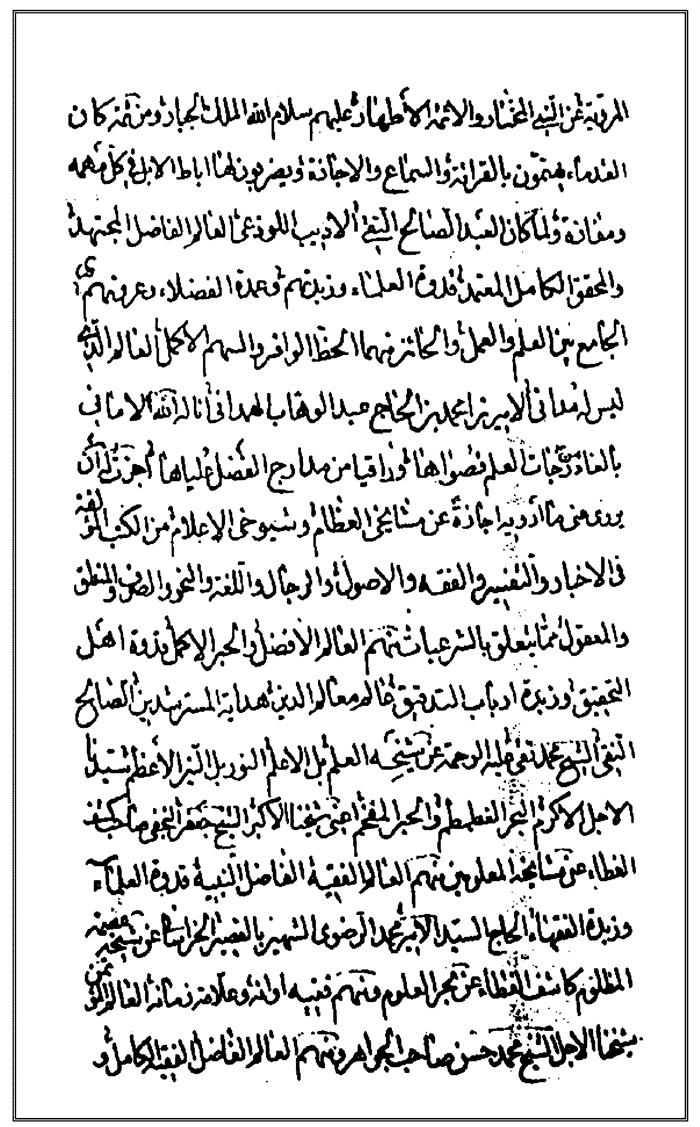 المروية عن النبي المختار والائمة الأطهار عليهم سلام الله الملك الجبار ومن ثمة كان
القدماء يهتمون بالقرائة والسماع والاجازة ويضربون لها اباط الابل في كل مهمه
ومفازة ولما كان العبد الصالح التقي الاديب اللوذعي العالم الفاضل المجتهد
والمحقق الكامل المعتمد قدوة العلماء وزبدتهم وعمدة الفضلاء وعروتهم
الجامع بين العلم والعمل والحائز منهما الحظ الوافر والسهم الاكمل العالم الذي
ليس له مداني الاميرزا محمد بن الحاج عبد الوهاب الهمداني أناله الله الاماني
بالغا من درجات العلم قصواها وراقيا من مدارج الفضل علياها أجزت له أن
يروي عني ما أرويه اجازة عن مشايخي العظام وشيوخي الاعلام من الكتب المؤلفة
في الاخبار والتفسير والفقه والاصول والرجال واللغة والنحو والصرف والمنطق
والمعقول مما يتعلق بالشرعيات منهم العالم الأفضل والحبر الاكمل قدوة اهل
التحقيق وزبدة ارباب التدقيق معالم الدين هداية المسترشدين الصالح
التقي الشيخ محمد تقي عليه الرحمة عن شيخه العلم بل الاعلم النور بل النير الأعظم شيخنا
الاجل الاكرم البحر الغطمطم والحبر المفخم اعني شيخنا الأكبر الشيخ جعفر النجفي صاحب كشف
الغطاء عن مشايخه المعلومين منهم العالم الفقيه الفاضل النبيه قدوة العلماء
وزبدة الفقهاء الحاج السيد الأمير محمد الرضوي الشهير بالقصير الخراساني عن شيخه
المظلوم كاشف الغطاء عن بحر العلوم ومنهم فقيه اوانه وعلامة زمانه العالم
شيخنا الاجل الشيخ محمد حسن صاحب الجواهر ومنهم العالم الفاضل الفقيه الكامل و